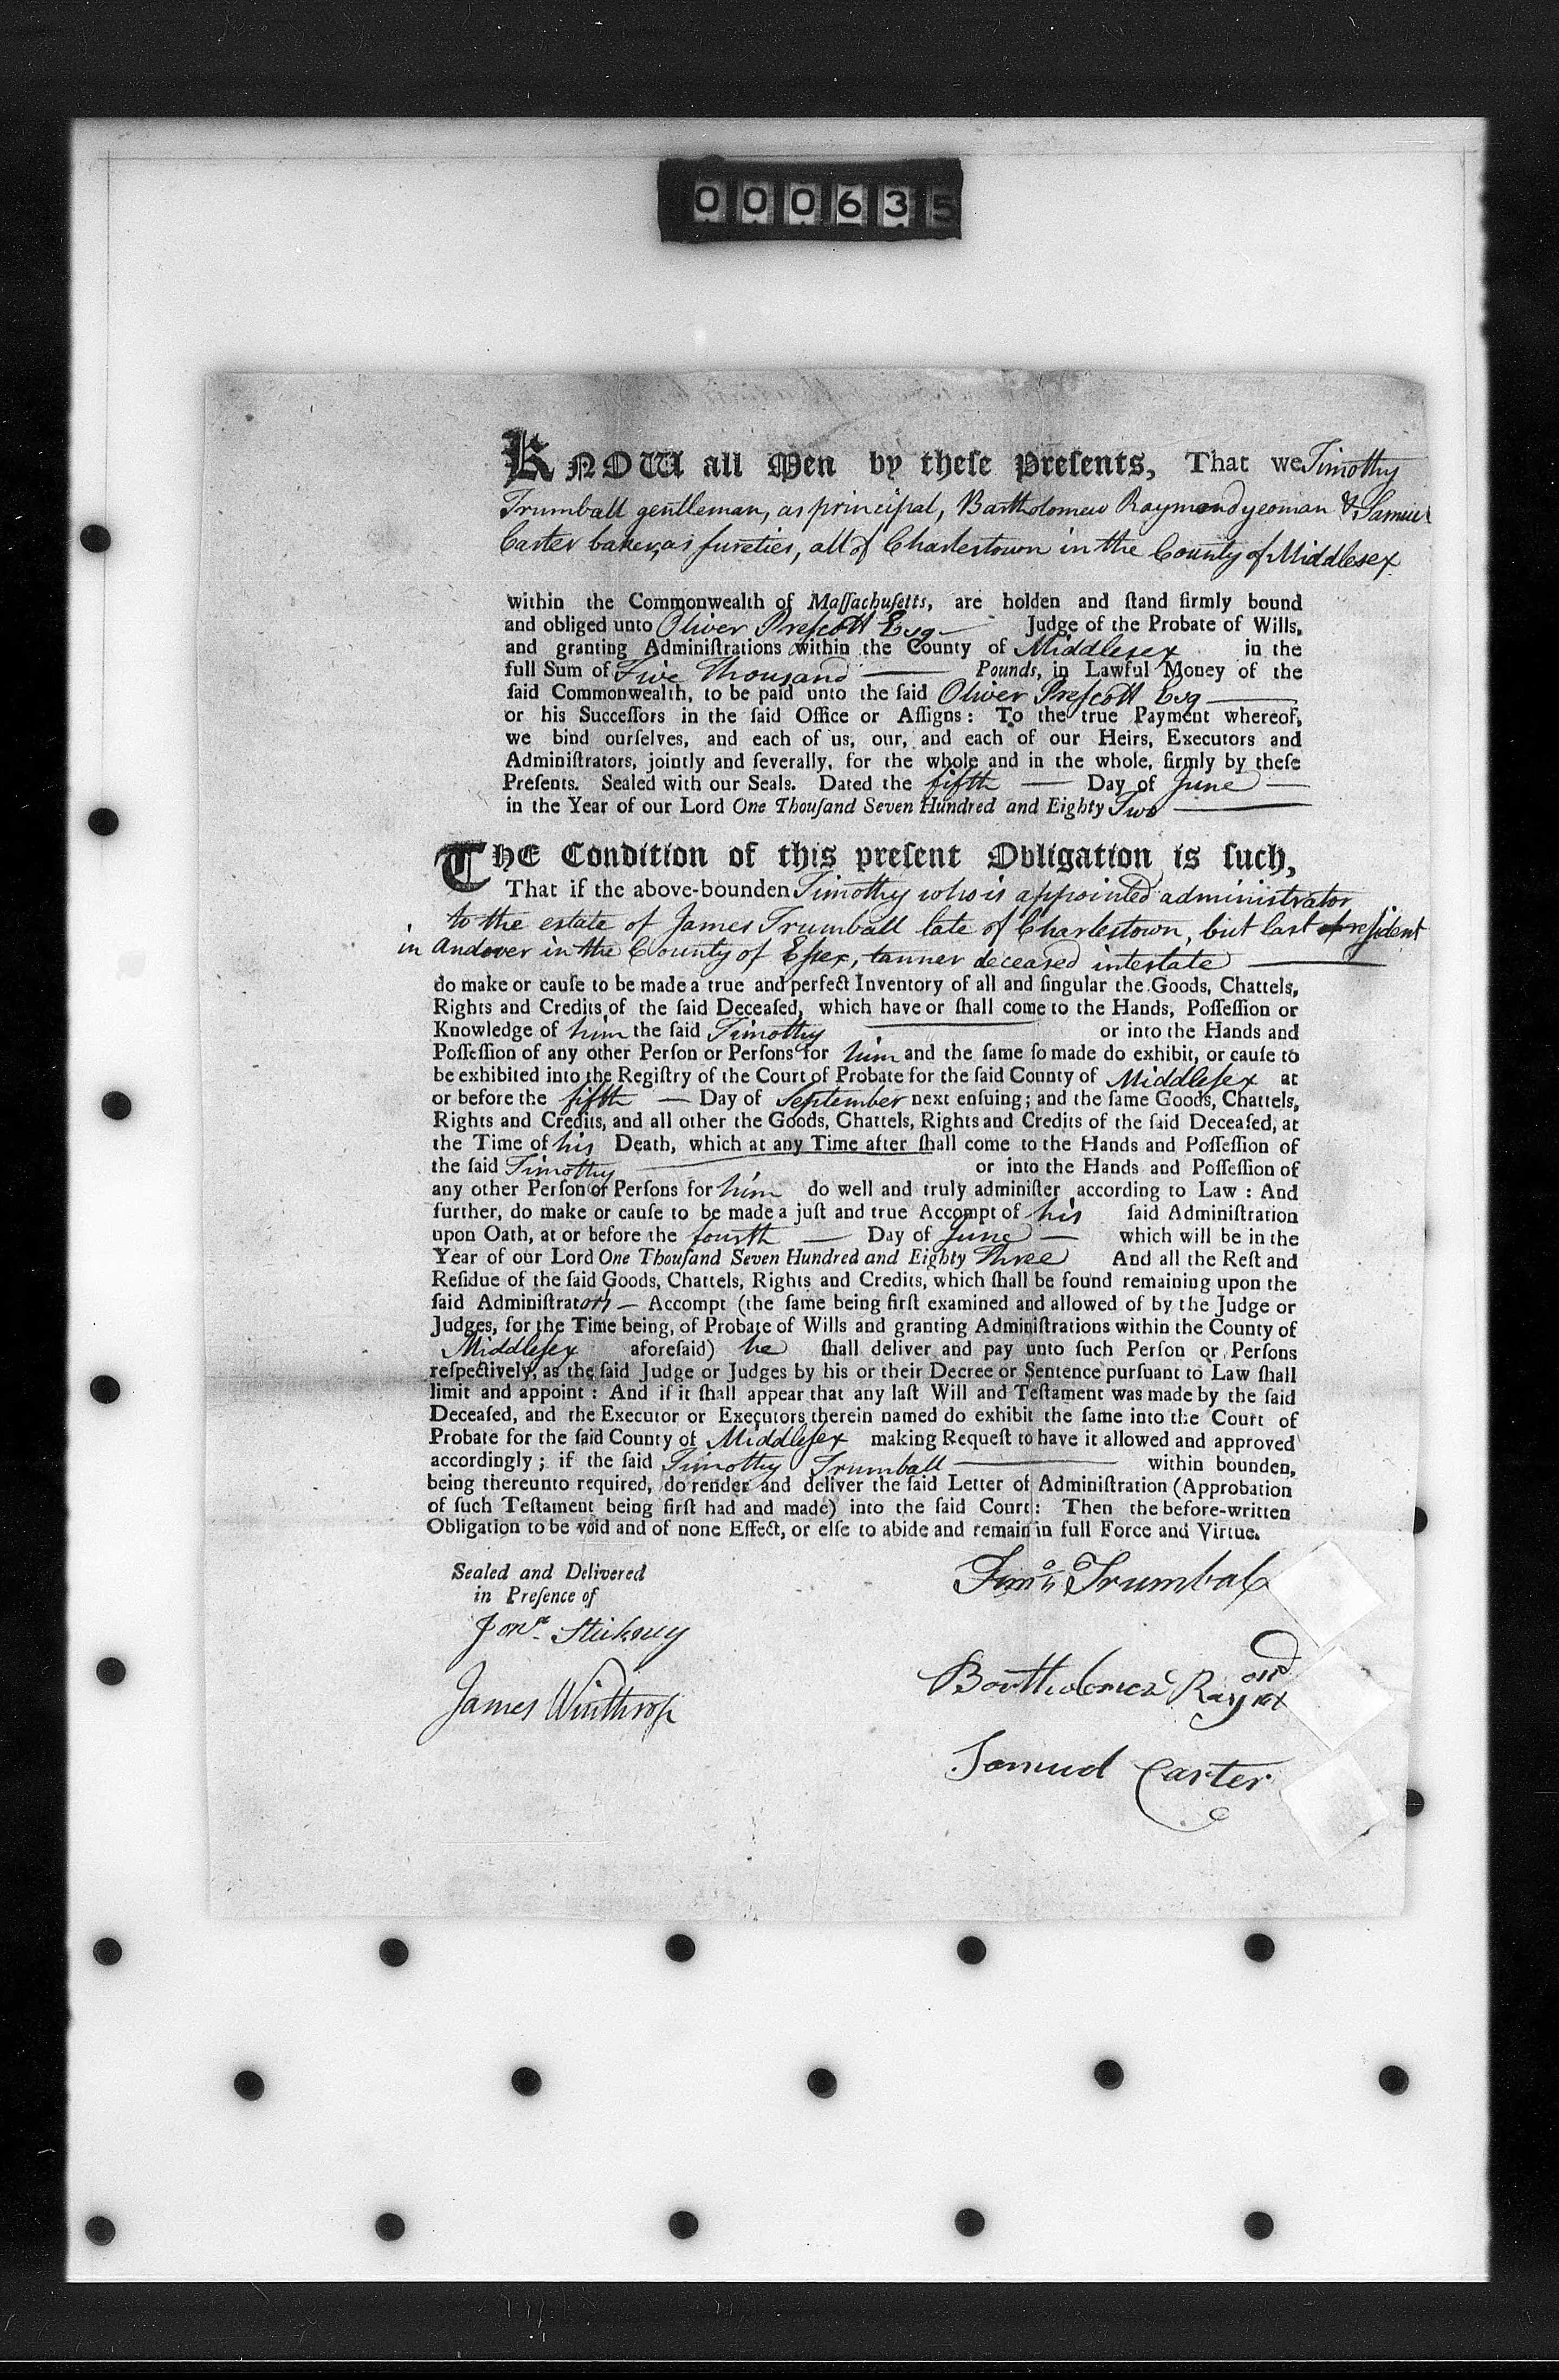 000635
KNOW all Men by theſe Preſents, That we Timothy
Trumball gentleman, as principal, Bartholomew Raymond yeoman & Samuel
Carter baker, as ſureties, all of Charlestown in the County of Middlesex
within the Commonwealth of Maſſachuſetts, are holden and ſtand firmly bound
and obliged unto Oliver Preſcott Esq— Judge of the Probate of Wills,
and granting Adminiſtrations within the County of Middlesex in the
full Sum of Five Thousand — Pounds, in Lawful Money of the
ſaid Commonwealth, to be paid unto the ſaid Oliver Preſcott Esq —
or his Succeſſors in the ſaid Office or Aſſigns: To the true Payment whereof,
we bind ourſelves, and each of us, our, and each of our Heirs, Executors and
Adminiſtrators, jointly and ſeverally, for the whole and in the whole, firmly by theſe
Preſents. Sealed with our Seals. Dated the fifth — Day of June —
in the Year of our Lord One Thouſand Seven Hundred and Eighty Two —
THE Condition of this preſent Obligation is ſuch,
That if the above-bounden Timothy who is appointed administrator
to the estate of James Trumball late of Charlestown, but last resident
in Andover in the County of Eſsex, tanner deceased intestate —
do make or cauſe to be made a true and perfect Inventory of all and ſingular the Goods, Chattels,
Rights and Credits of the ſaid Deceaſed, which have or ſhall come to the Hands, Poſſeſſion or
Knowledge of him the ſaid Timothy — or into the Hands and
Poſſeſſion of any other Perſon or Perſons for him and the ſame ſo made do exhibit, or cauſe to
be exhibited into the Regiſtry of the Court of Probate for the ſaid County of Middleſex at
or before the fifth — Day of September next enſuing; and the ſame Goods, Chattels,
Rights and Credits, and all other the Goods, Chattels, Rights and Credits of the ſaid Deceaſed, at
the Time of his Death, which at any Time after ſhall come to the Hands and Poſſeſſion of
the ſaid Timothy — or into the Hands and Poſſeſſion of
any other Perſon or Perſons for him do well and truly adminiſter according to Law: And
further, do make or cauſe to be made a juſt and true Accompt of his ſaid Adminiſtration
upon Oath, at or before the fourth — Day of June — which will be in the
Year of our Lord One Thouſand Seven Hundred and Eighty Three And all the Reſt and
Reſidue of the ſaid Goods, Chattels, Rights and Credits, which ſhall be found remaining upon the
ſaid Adminiſtrators — Accompt (the ſame being firſt examined and allowed of by the Judge or
Judges, for the Time being, of Probate of Wills and granting Adminiſtrations within the County of
Middleſex aforeſaid) he ſhall deliver and pay unto ſuch Perſon or Perſons
reſpectively, as the ſaid Judge or Judges by his or their Decree or Sentence purſuant to Law ſhall
limit and appoint: And if it ſhall appear that any laſt Will and Teſtament was made by the ſaid
Deceaſed, and the Executor or Executors therein named do exhibit the ſame into the Court of
Probate for the ſaid County of Middleſex making Requeſt to have it allowed and approved
accordingly; if the ſaid Timothy Trumball — within bounden,
being thereunto required, do render and deliver the ſaid Letter of Adminiſtration (Approbation
of ſuch Teſtament being firſt had and made) into the ſaid Court: Then the before-written
Obligation to be void and of none Effect, or elſe to abide and remain in full Force and Virtue.
Sealed and Delivered
in Preſence of
Jona. Stickney
James Winthrop
Timo. Trumbal
Bartholomew Raymond
Samuel Carter